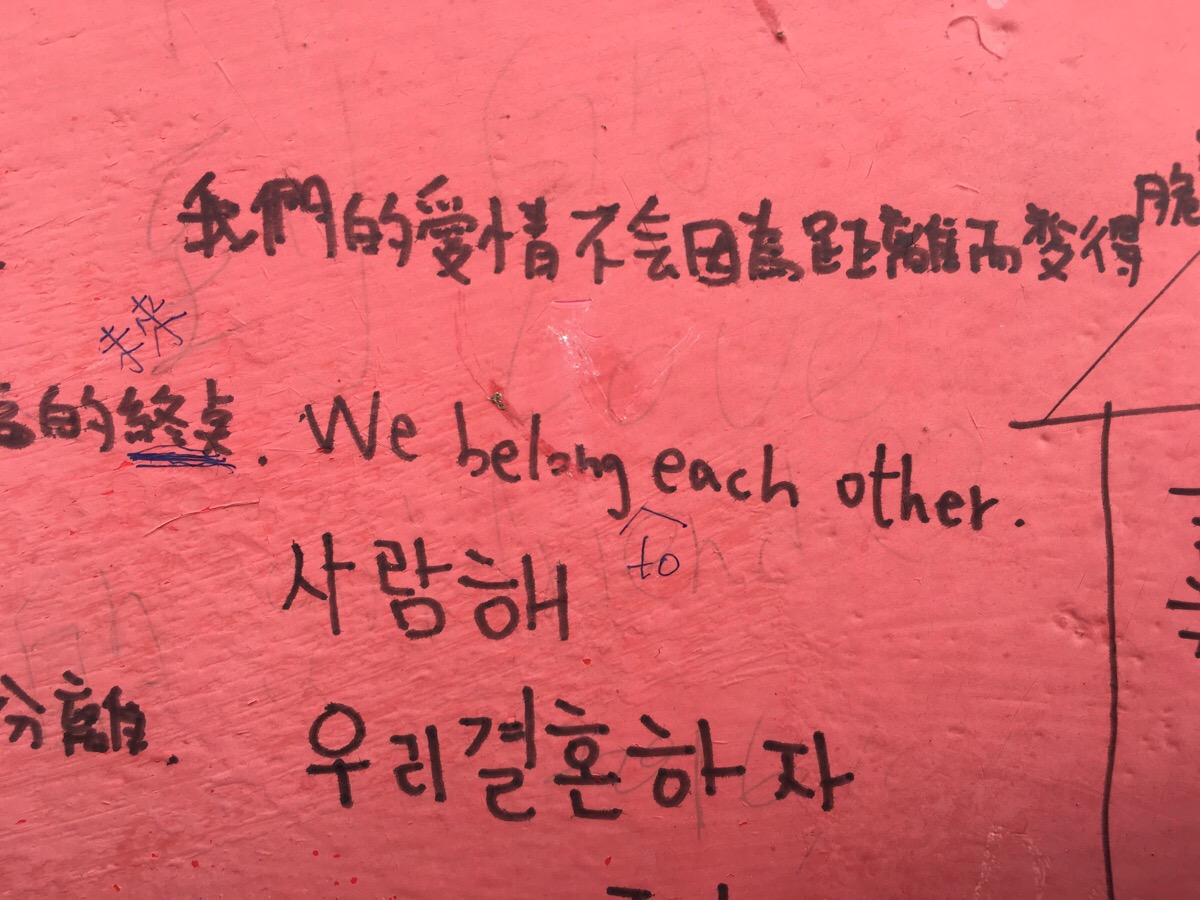 我們的愛情不会因為距離而变得脆
的終点. We belong each other.
to
사람해
分離.
우리결혼하자